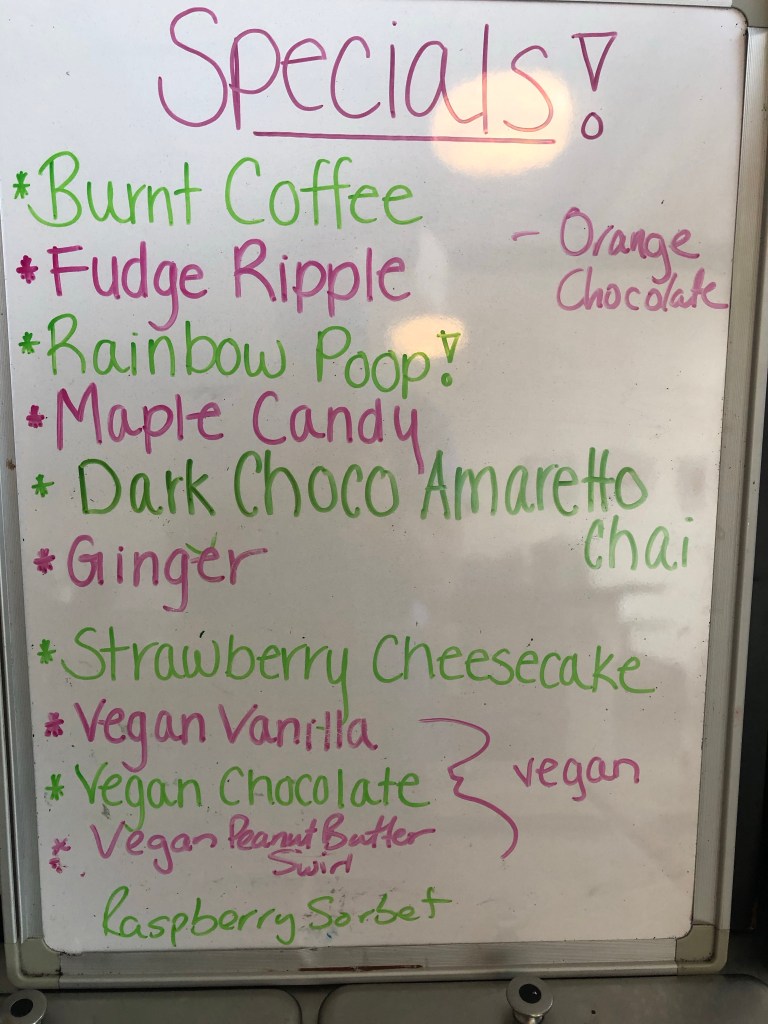 Specials!
*Burnt Coffee
*Fudge Ripple
- Orange
Chocolate
*Rainbow Poop!
*Maple Candy
* Dark Choco Amaretto
Chai
*Ginger
*Strawberry Cheesecake
*Vegan Vanilla
*Vegan Chocolate
vegan
* Vegan Peanut Butter
Swirl
Raspberry Sorbet